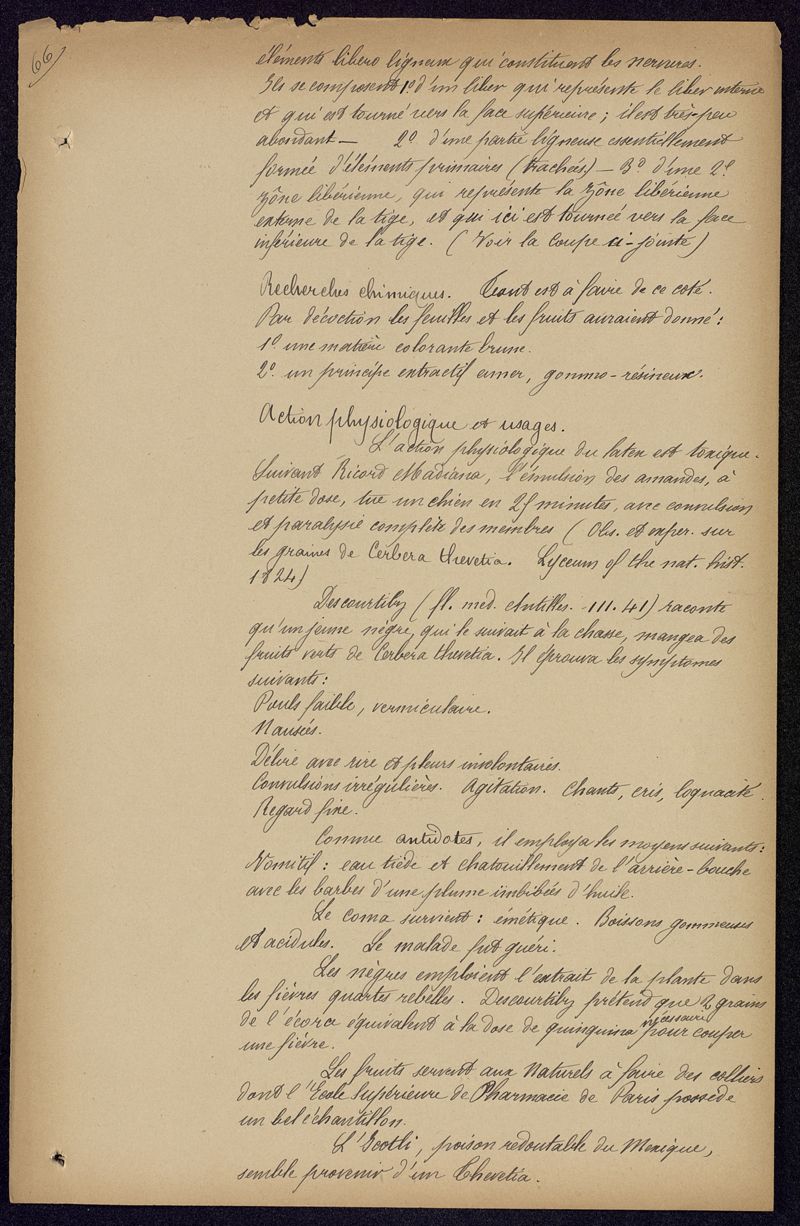 66)
éléments libero ligneux qui constituent les nervures.
Ils se composent 1º d'un liber qui représente le liber interne
et qui est tourné vers la face supérieure ; il est très-peu
abondant — 2º d'une partie ligneuse essentiellement
formée d'éléments primaires (trachées) — 3º d'une 2e
zône libérienne, qui représente la zône libérienne
externe de la tige, et qui ici est tournée vers la face
inférieure de la tige. (Voir la Coupe ci-jointe)
Recherches chimiques. Tout est à faire de ce coté.
Par décoction les feuilles et les fruits auraient donné :
1º une matière colorante brune.
2º un principe extractif amer, gommo-résineux.
Action physiologique et usages.
L'action physiologique du latex est toxique.
Suivant Ricord Madiana, l'émulsion des amandes, à
petite dose, tue un chien en 25 minutes, avec convulsion
et paralysie complète des membres (Obs. et exper. sur
les graines de Cerbera thevetia. Lyceum of the nat. hist.
1824)
Descourtilz (fl. med. Antilles. III. 41) raconte
qu'un jeune nègre, qui le suivait à la chasse, mangea des
fruits verts de Cerbera thevetia. Il éprouva les symptomes
suivants :
Pouls faible, vermiculaire.
Nausées.
Délire avec rire et pleurs involontaires.
Convulsions irrégulières. Agitation. Chants, cris, loquacité.
Regard fixe.
Comme antidotes, il employa les moyens suivants :
Vomitif : eau tiède et chatouillement de l'arrière-bouche
avec les barbes d'une plume imbibées d'huile.
Le coma survient : émétique. Boissons gommeuses
et acidules. Le malade fut guéri.
Les nègres emploient l'extrait de la plante dans
les fièvres quartes rebelles. Descourtilz prétend que 2 grains
de l'écorce équivalent à la dose de quinquina nécessaire pour couper
une fièvre.
Les fruits servent aux Naturels à faire des colliers
dont l'Ecole Supérieure de Pharmacie de Paris possède
un bel échantillon.
L'Yootli, poison redoutable du Mexique,
semble provenir d'un Thevetia.